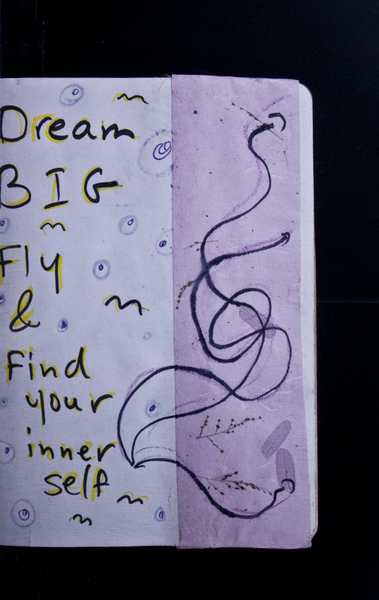 Dream
BIG
Fly
&
Find
your
inner
self